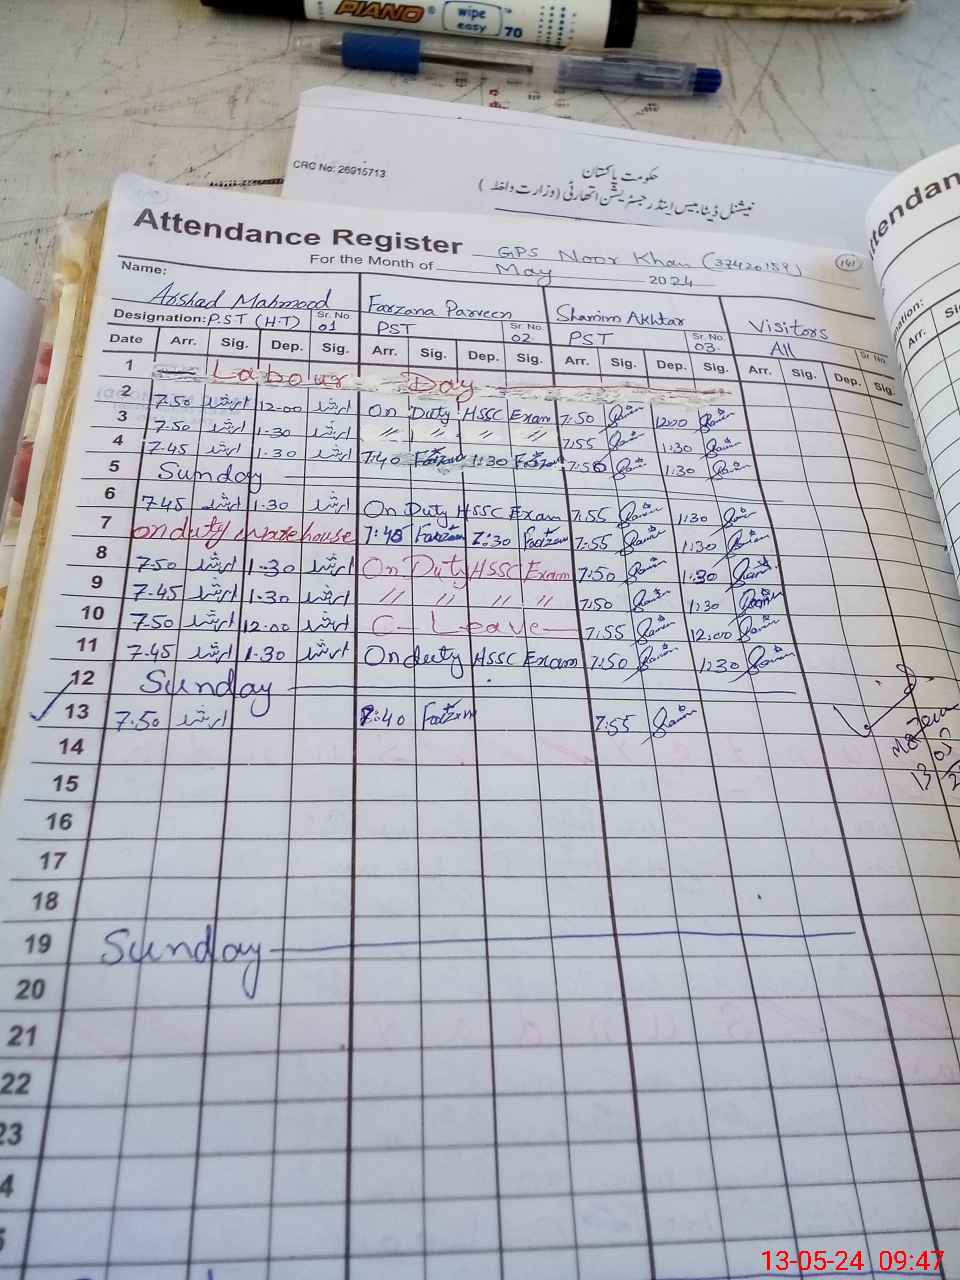 PIANO ® wipe easy 70
CRC No: 26915713
حکومت پاکستان
نیشنل ڈیٹا بیس اینڈ رجسٹریشن اتھارٹی (وزارت داخلہ)
Attendance Register GPS Noor Khan (37420159) 141
For the Month of May 2024
Name: Arshad Mahmood Farzana Parveen Shamim Akhtar Visitors
Designation: P.S.T (H.T) Sr. No. 01 PST Sr. No. 02 PST Sr. No. 03 All Sr. No.
Date Arr. Sig. Dep. Sig. Arr. Sig. Dep. Sig. Arr. Sig. Dep. Sig. Arr. Sig. Dep. Sig.
1 Labour Day
2 7.50 ارشد 12-00 ارشد On Duty HSSC Exam 7:50 12:00
3 7.50 ارشد 1.30 ارشد // // // // 7:55 1:30
4 7.45 ارشد 1.30 ارشد 7:40 Farzan 1:30 Farzan 7:50 1:30
5 Sunday
6 7.45 ارشد 1.30 ارشد On Duty HSSC Exam 7:55 1:30
7 on duty warehouse 7:40 Farzan 1:30 Farzan 7:55 1:30
8 7.50 ارشد 1.30 ارشد On Duty HSSC Exam 7:50 1:30
9 7.45 ارشد 1.30 ارشد // // // // 7:50 1:30
10 7.50 ارشد 12.00 ارشد C- Leave 7:55 12:00
11 7.45 ارشد 1.30 ارشد On duty HSSC Exam 7:50 1:30
12 Sunday
13 7.50 ارشد 7:40 Farzan 7:55
14
15
16
17
18
19 Sunday
20
21
22
23
4
5
ttendan
nation:
Arr. Si
13
13-05-24 09:47